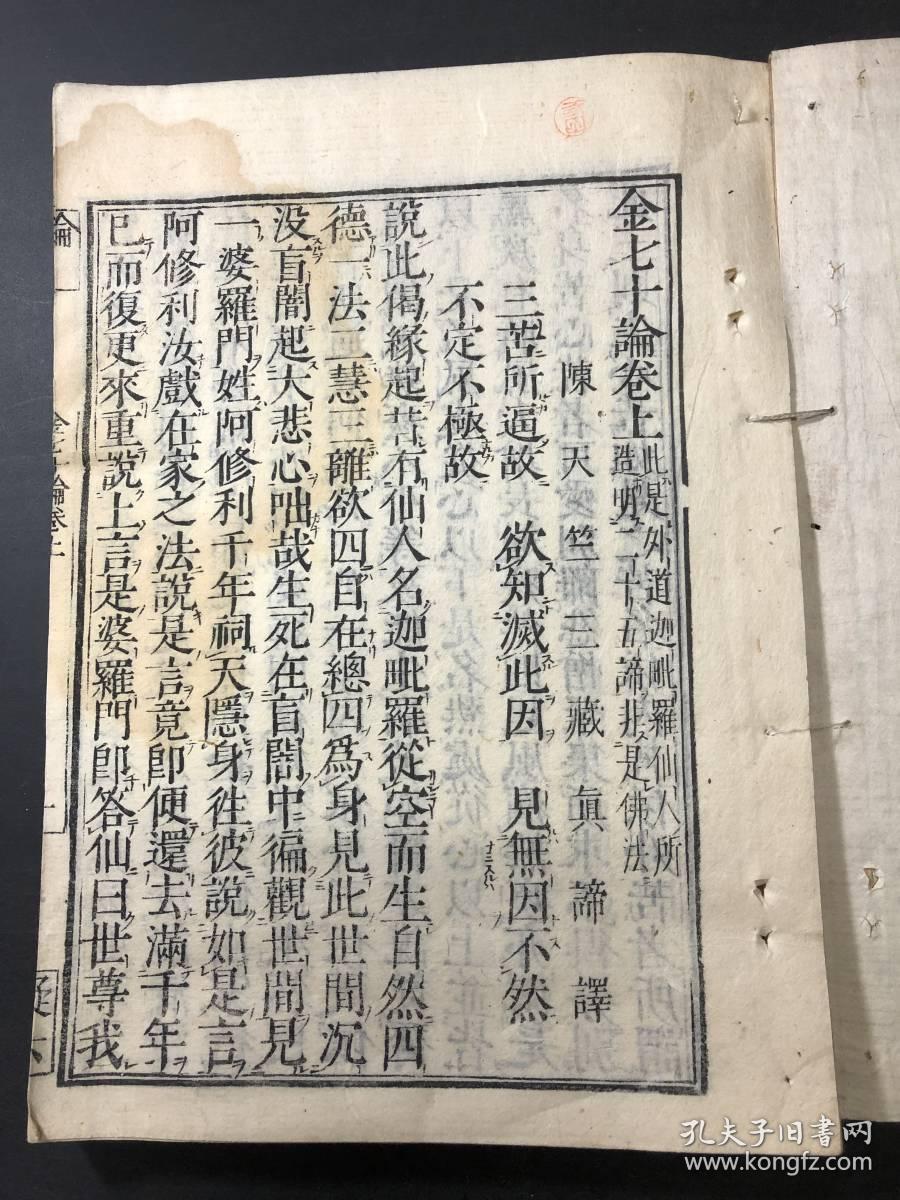 金七十論卷上
此是外道迦毗羅仙人所
造明二十五諦非是佛法
陳天竺三藏眞諦譯
三苦所逼故　欲知滅此因　見無因不然
不定不極故
說此偈緣起昔有仙人名迦毗羅從空而生自然四
德一法二慧三離欲四自在總四爲身見此世間沉
没盲闇起大悲心咄哉生死在盲闇中徧觀世間見
一婆羅門姓阿修利千年祠天隱身徃彼說如是言
阿修利汝戲在家之法說是言竟即便還去滿千年
已而復更來重說上言是婆羅門即答仙曰世尊我
論
金七十論卷上
孔夫子旧书网
www.kongfz.com